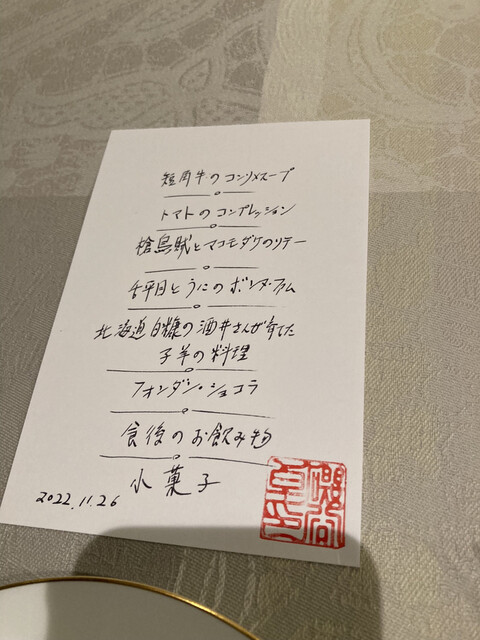 短角牛のコンソメスープ
トマトのコンプレッション
槍烏賊とマコモダケのソテー
舌平目とうにのボンヌ・ファム
北海道白糠の酒井さんが育てた
子羊の料理
フォンダン・ショコラ
食後のお飲み物
小菓子
2022.11.26